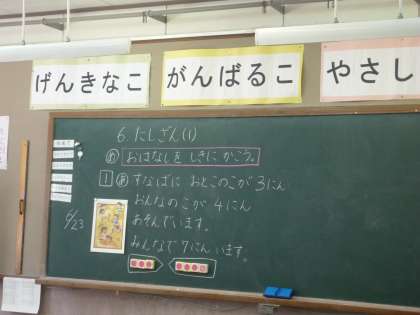 げんきなこ
がんばるこ
やさし
6. たしざん(1)
め おはなしを しきに かこう。
1 もん すなばに おとこのこが 3にん
おんなのこが 4にん
あそんでいます。
みんなで 7にん います。
6/23